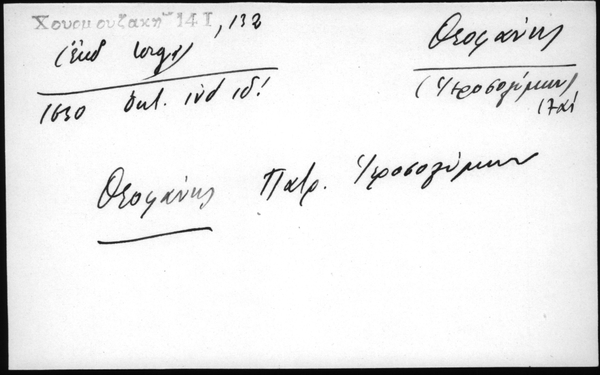 Χουρμουζάκη 141, 132
(ἔκδ Iorga)
1630 Ὀκτ. ἰνδ ιδ!
Θεοφάνης
(Ἱεροσολύμων)
17αἰ
Θεοφάνης Πατρ. Ἱεροσολύμων